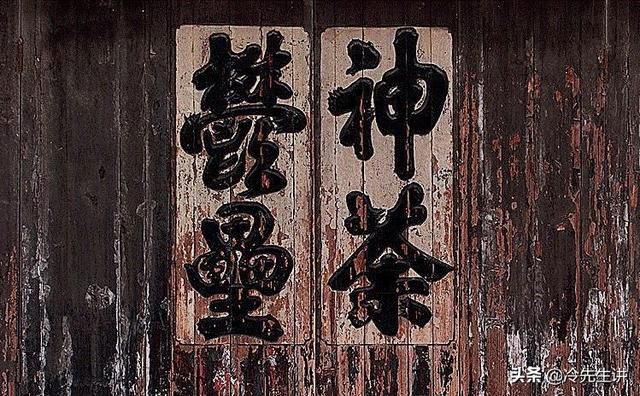 神荼
鬱壘
头条 @冷先生讲